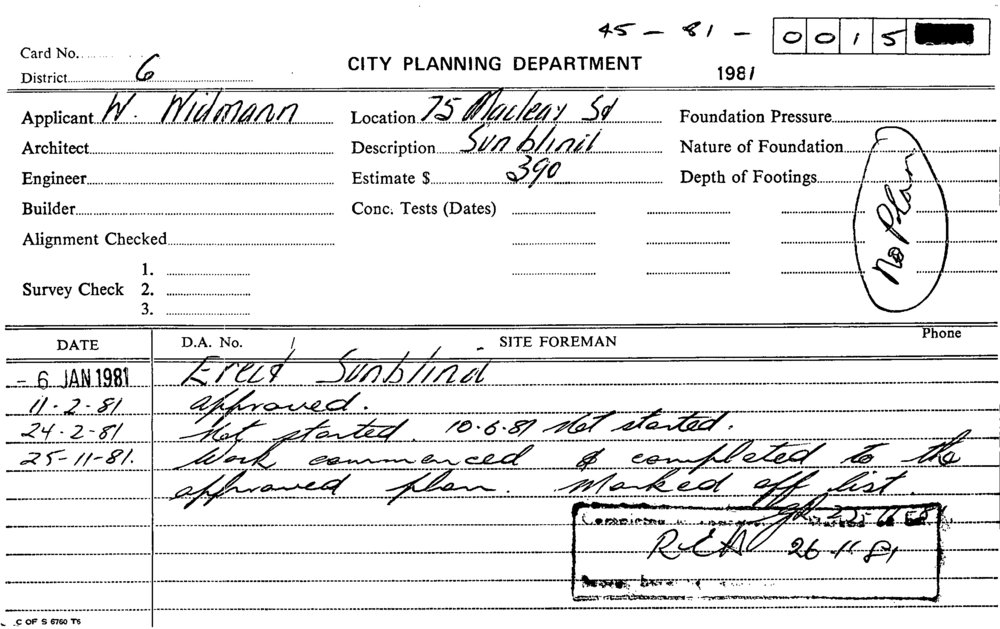 45 - 81 - 0015
Card No.
District 6
CITY PLANNING DEPARTMENT
1981
Applicant W. Widmann
Location 75 Macleay St
Foundation Pressure
Architect
Description Sunblind
Nature of Foundation
Engineer
Estimate $ 390
Depth of Footings
Builder
Conc. Tests (Dates)
No Plan
Alignment Checked
1.
Survey Check 2.
3.
DATE D.A. No. / SITE FOREMAN Phone
- 6 JAN 1981 Erect Sunblind
11-2-81 approved.
24-2-81 Not started. 10-6-81 Not started.
25-11-81. Work commenced & completed to the
approved plan. Marked off list.
25-11-81
26-11-81
C OF S 6760 T5